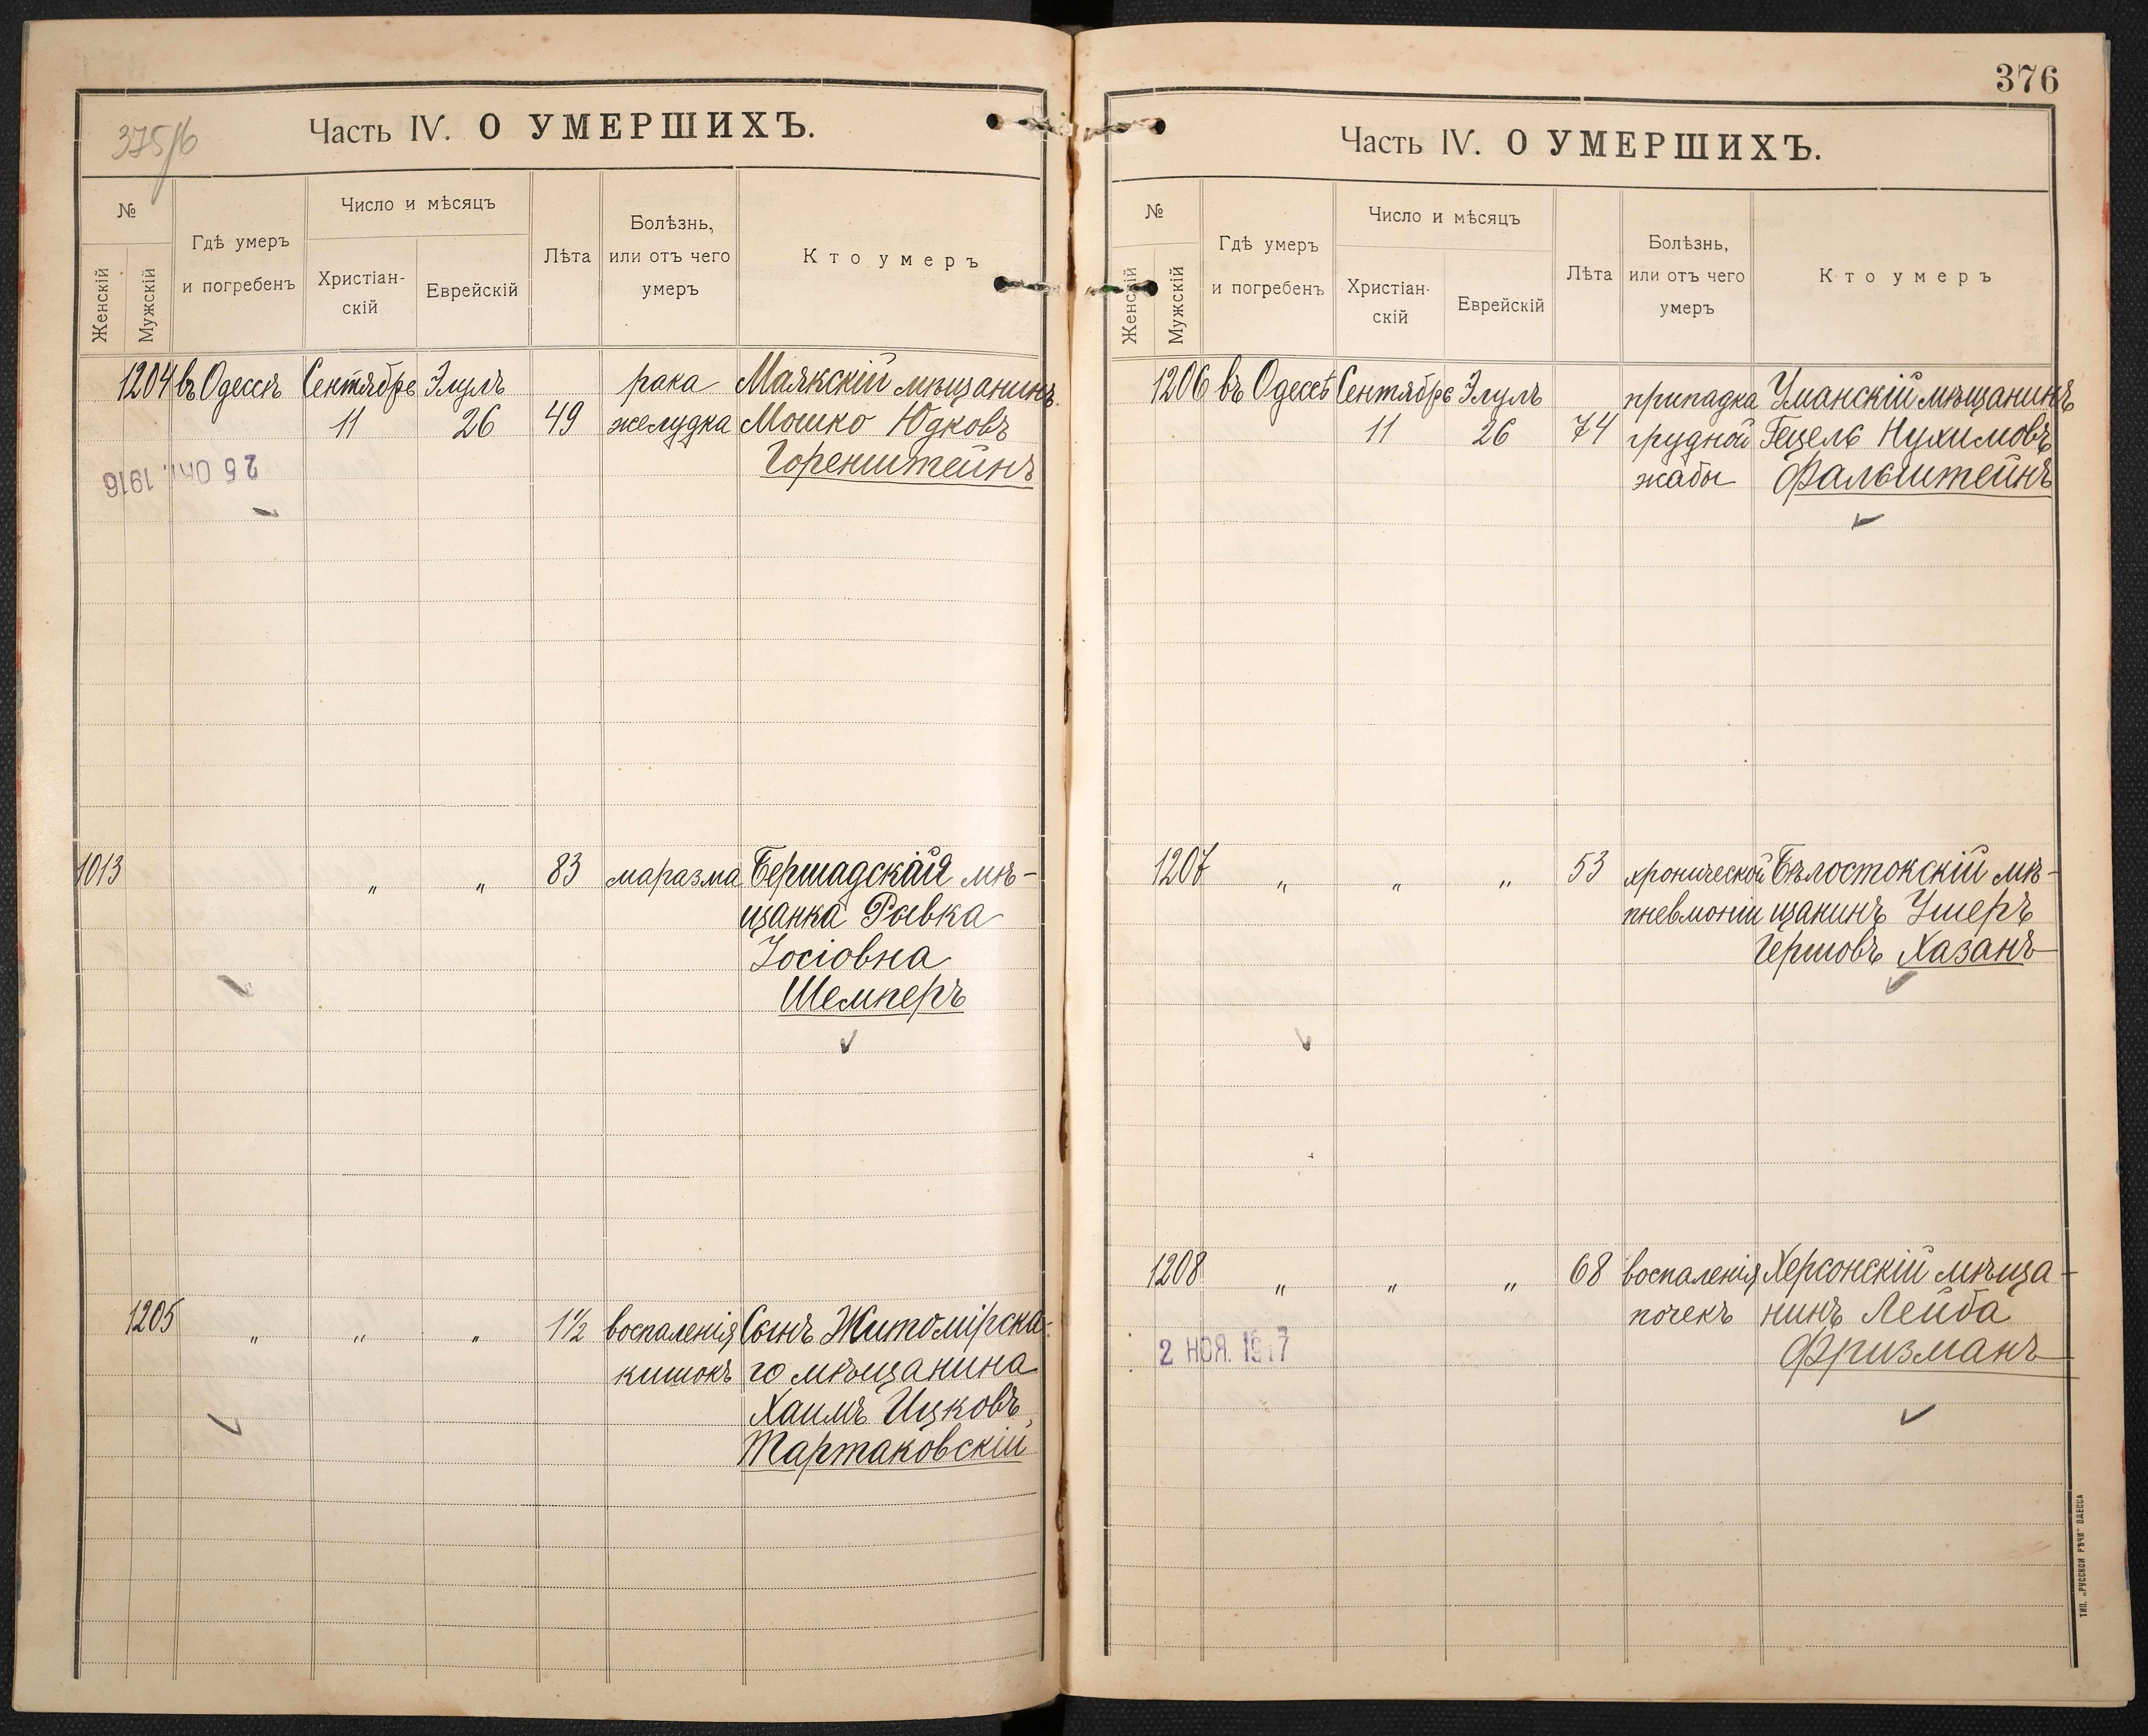 375/б
Часть IV. О УМЕРШИХЪ.
№
Женскій
Мужскій
Гдѣ умеръ
и погребенъ
Число и мѣсяцъ
Христіан-
скій
Еврейскій
Лѣта
Болѣзнь,
или отъ чего
умеръ
Кто умеръ
1204 въ Одессѣ Сентябре Элулъ рака Маякскій мѣщанинъ
11 26 49 желудка Мошко Юдковъ
Горенштейнъ
25 Окт. 1916
1013 „ „ 83 маразма Бершадская мѣ-
щанка Ривка
Іосіовна
Шемперъ
1205 „ „ „ 1½ воспаленія Сынъ Житомірска-
кишокъ го мѣщанина
Хаимъ Ицковъ
Тартаковскій
376
Часть IV. О УМЕРШИХЪ.
№
Женскій
Мужскій
Гдѣ умеръ
и погребенъ
Число и мѣсяцъ
Христіан-
скій
Еврейскій
Лѣта
Болѣзнь,
или отъ чего
умеръ
Кто умеръ
1206 въ Одессѣ Сентябре Элулъ припадка Уманскій мѣщанинъ
11 26 74 грудной Гецель Нухимовъ
жабы Фальштейнъ
1207 „ „ „ 53 хронической Бѣлостокскій мѣ-
пневмоніи щанинъ Ушеръ
Гершовъ Хазанъ
1208 „ „ „ 68 воспаленія Херсонскій мѣща-
почекъ нинъ Лейба
Фризманъ
2 НОЯ. 1917
ТИП. „РУССКОЙ РѢЧИ" ОДЕССА